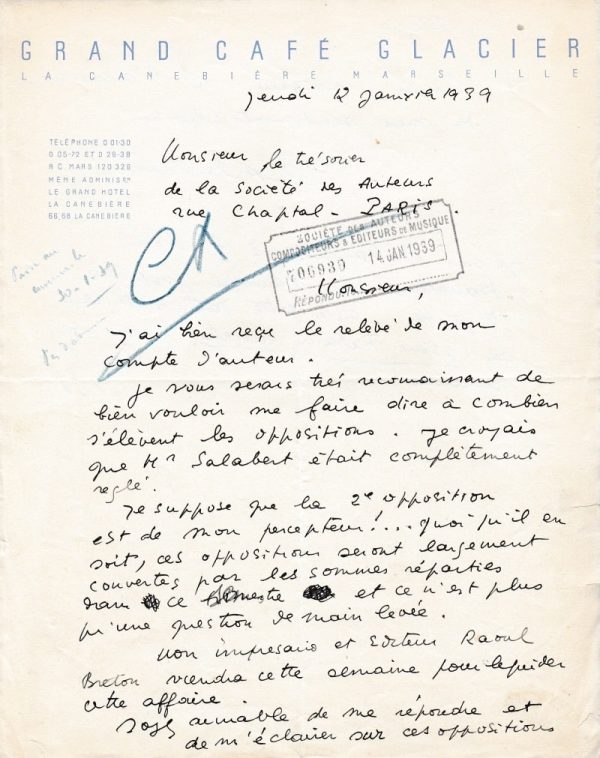 GRAND CAFÉ GLACIER
LA CANEBIÈRE MARSEILLE
Jeudi 12 Janvier 1939
TÉLÉPHONE D 01-30
D 05-72 ET D 29-38
R C MARS 120 326
MÊME ADMINIS
LE GRAND HOTEL
LA CANEBIÈRE
66,68 LA CANEBIÈRE
Monsieur le trésorier
de la Société des Auteurs
rue Chaptal - PARIS.
SOCIÉTÉ DES AUTEURS
COMPOSITEURS & EDITEURS DE MUSIQUE
706930 14 JAN 1939
30-1-39
Monsieur,
J'ai bien reçu le relevé de mon
compte d'auteur.
Je vous serais très reconnaissant de
bien vouloir me faire dire à combien
s'élèvent les oppositions. Je croyais
que Mr Salabert était complètement
réglé.
Je suppose que la 2e opposition
est de mon percepteur!... quoi qu'il en
soit, ces oppositions seront largement
couvertes par les sommes réparties
dans ce et ce n'est plus
qu'une question de main levée.
Mon impresario et Editeur Raoul
Breton viendra cette semaine pour liquider
cette affaire.
Soyez aimable de me répondre et
de m'éclairer sur ces oppositions